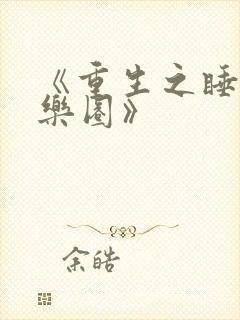 《重生之睡
樂園》
余皓